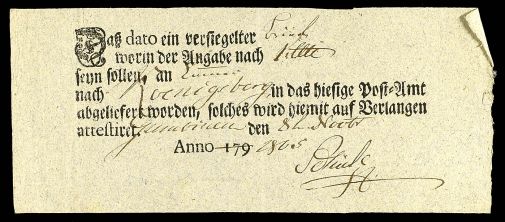 Daß dato ein versiegelter Brief
worin der Angabe nach
seyn sollen, an
nach Koenigsberg in das hiesige Post-Amt
abgeliefert worden, solches wird hiemit auf Verlangen
attestiret. Gumbinnen den 8t Novbr
Anno 179 1805